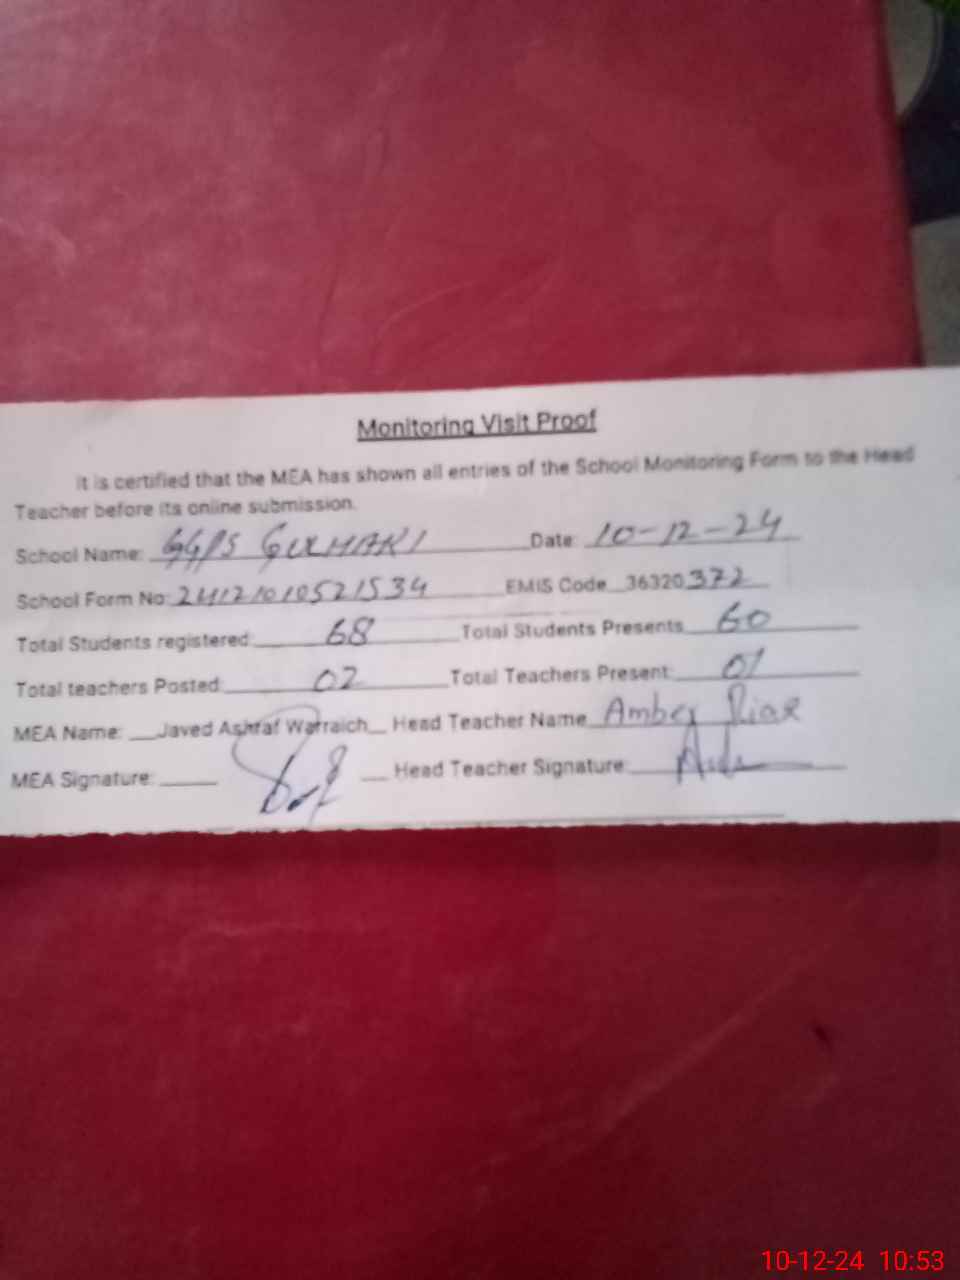 Monitoring Visit Proof
It is certified that the MEA has shown all entries of the School Monitoring Form to the Head
Teacher before its online submission.
School Name: GGPS GULHAKI Date: 10-12-24
School Form No: 24121010521534 EMIS Code 36320372
Total Students registered: 68 Total Students Presents 60
Total teachers Posted: 02 Total Teachers Present: 01
MEA Name: Javed Ashraf Warraich Head Teacher Name Amber Riaz
MEA Signature: Head Teacher Signature:
10-12-24 10:53